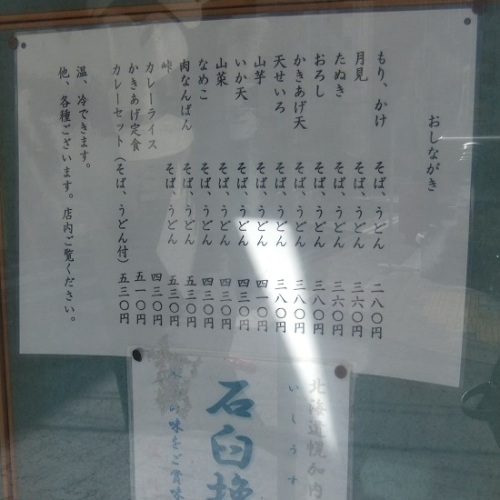 おしながき
もり、かけ そば、うどん 二八〇円
月見 そば、うどん 三六〇円
たぬき そば、うどん 三六〇円
おろし そば、うどん 三八〇円
かきあげ天 そば、うどん 三八〇円
天せいろ そば、うどん 三八〇円
山芋 そば、うどん 四一〇円
いか天 そば、うどん 四三〇円
山菜 そば、うどん 四三〇円
なめこ そば、うどん 四三〇円
肉なんばん そば、うどん 五三〇円
峠 そば、うどん 五三〇円
カレーライス 四三〇円
かきあげ定食 五一〇円
カレーセット（そば、うどん付）五三〇円
温、冷できます。
他、各種ございます。店内ご覧ください。
北海道幌加内
いしうす
石臼挽
味をご賞味